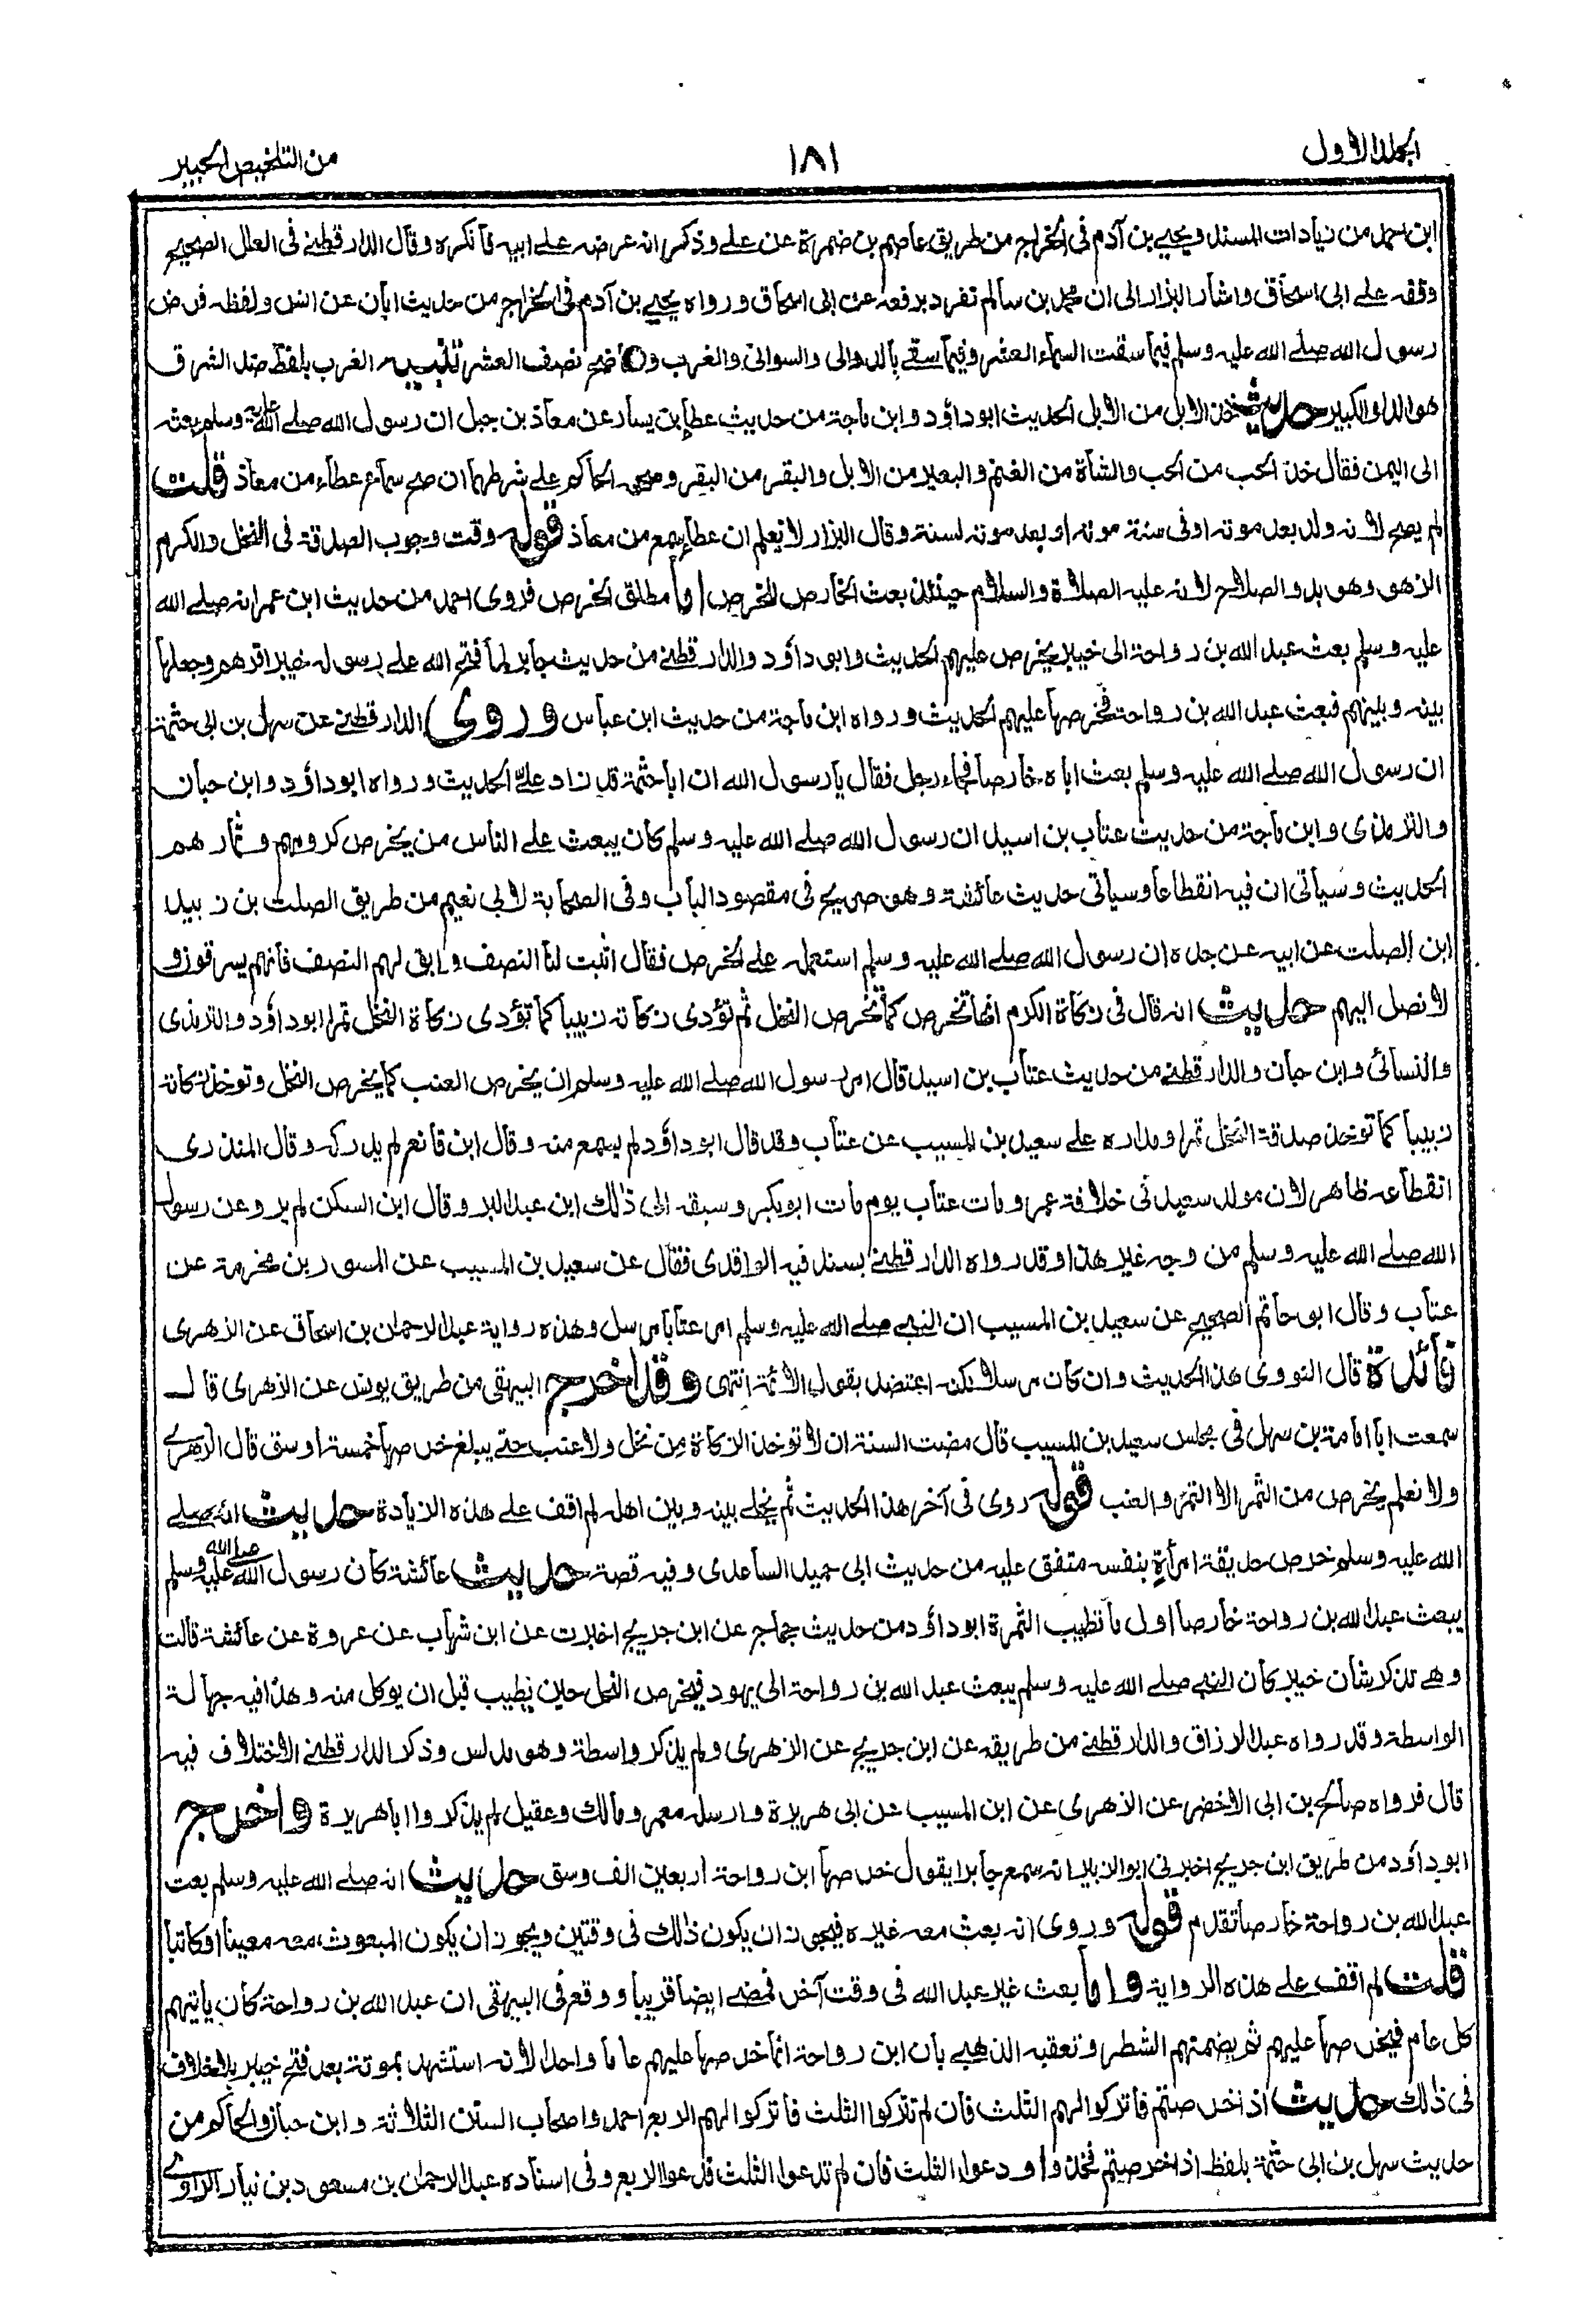 الجلد الاول
١٨١
من التلخيص الحبير
ابن احمد من زيادات المسند ويحيى بن آدم فى الخراج من طريق عاصم بن ضمرة عن على وذكر انه عرضه على ابيه فانكره وقال الدارقطنى فى العلل الصحيح
وقفه على ابى اسحاق واشار البزار الى ان محمد بن سالم تفرد برفعه عن ابى اسحاق ورواه يحيى بن آدم فى الخراج من حديث ابان عن انس ولفظه فرض
رسول الله صلى الله عليه وسلم فيما سقت السماء العشر وفيما سقى بالدوالى والسوانى والغرب والناضح نصف العشر تنبيه الغرب بلفظ ضد الشرق
هو الدلو الكبير حديث خذ الابل من الابل الحديث ابو داؤد وابن ماجة من حديث عطاء بن يسار عن معاذ بن جبل ان رسول الله صلى الله عليه وسلم بعثه
الى اليمن فقال خذ الحب من الحب والشاة من الغنم والبعير من الابل والبقر من البقر وصححه الحاكم على شرطهما ان صح سماع عطاء من معاذ قلت
لم يصح لانه ولد بعد موته او فى سنة موته او بعد موته لسنة وقال البزار لا نعلم ان عطاء سمع من معاذ قوله وقت وجوب الصدقة فى النخل والكرم
الزهو وهو بدو الصلاح لانه عليه الصلاة والسلام حينئذ بعث الخارص للخرص اما مطلق الخرص فروى احمد من حديث ابن عمر انه صلى الله
عليه وسلم بعث عبد الله بن رواحة الى خيبر يخرص عليهم الحديث وابو داؤد والدارقطنى من حديث جابر لما فتح الله على رسوله خيبر اقرهم وجعلها
بينه وبينهم فبعث عبد الله بن رواحة فخرصها عليهم الحديث ورواه ابن ماجة من حديث ابن عباس وروى الدارقطنى عن سهل بن ابى حثمة
ان رسول الله صلى الله عليه وسلم بعث اباه خارصا فجاء رجل فقال يا رسول الله ان ابا حثمة قد زاد علىّ الحديث ورواه ابو داؤد وابن حبان
والترمذى وابن ماجة من حديث عتاب بن اسيد ان رسول الله صلى الله عليه وسلم كان يبعث على الناس من يخرص كرومهم وثمارهم
الحديث وسيأتى ان فيه انقطاعا وسيأتى حديث عائشة وهو صريح فى مقصود الباب وفى الصحابة لابى نعيم من طريق الصلت بن زبيد
ابن الصلت عن ابيه عن جده ان رسول الله صلى الله عليه وسلم استعمله على الخرص فقال اثبت لنا النصف وابق لهم النصف فانهم يسرقون و
لا نصل اليهم حديث انه قال فى زكاة الكرم انها تخرص كما تخرص النخل ثم تؤدى زكاته زبيبا كما تؤدى زكاة النخل تمرا ابو داؤد والترمذى
والنسائى وابن حبان والدارقطنى من حديث عتاب بن اسيد قال امر رسول الله صلى الله عليه وسلم ان يخرص العنب كما يخرص النخل وتوخذ زكاته
زبيبا كما توخذ صدقة النخل تمرا ومداره على سعيد بن المسيب عن عتاب وقد قال ابو داؤد لم يسمع منه وقال ابن قانع لم يدركه وقال المنذرى
انقطاعه ظاهر لان مولد سعيد فى خلافة عمر ومات عتاب يوم مات ابو بكر وسبقه الى ذالك ابن عبد البر وقال ابن السكن لم يرو عن رسول
الله صلى الله عليه وسلم من وجه غير هذا وقد رواه الدارقطنى بسند فيه الواقدى فقال عن سعيد بن المسيب عن المسور بن مخرمة عن
عتاب وقال ابو حاتم الصحيح عن سعيد بن المسيب ان النبى صلى الله عليه وسلم امر عتابا مرسل وهذه رواية عبد الرحمان بن اسحاق عن الزهرى
فائدة قال النووى هذا الحديث وان كان مرسلا لكنه اعتضد بقول الائمة انتهى وقد اخرج البيهقى من طريق يونس عن الزهرى قال
سمعت ابا امامة بن سهل فى مجلس سعيد بن المسيب قال مضت السنة ان لا توخذ الزكاة من نخل ولا عنب حتى يبلغ خرصها خمسة اوسق قال الزهرى
ولا نعلم يخرص من الثمر الا التمر والعنب قوله روى فى آخر هذا الحديث ثم يخلى بينه وبين اهله لم اقف على هذه الزيادة حديث انه صلى
الله عليه وسلم خرص حديقة امرأة بنفسه متفق عليه من حديث ابى حميد الساعدى وفيه قصة حديث عائشة كان رسول الله صلى الله عليه وسلم
يبعث عبد الله بن رواحة خارصا اول ما تطيب الثمرة ابو داؤد من حديث حجاج عن ابن جريج اخبرت عن ابن شهاب عن عروة عن عائشة قالت
وهى تذكر شان خيبر كان النبى صلى الله عليه وسلم يبعث عبد الله بن رواحة الى يهود فيخرص النخل حين يطيب قبل ان يوكل منه وهذا فيه جهالة
الواسطة وقد رواه عبد الرزاق والدارقطنى من طريقه عن ابن جريج عن الزهرى ولم يذكر واسطة وهو مدلس وذكر الدارقطنى الاختلاف فيه
قال فرواه صالح بن ابى الاخضر عن الزهرى عن ابن المسيب عن ابى هريرة وارسله معمر ومالك وعقيل لم يذكروا ابا هريرة واخرج
ابو داؤد من طريق ابن جريج اخبرنى ابو الزبير انه سمع جابرا يقول خرصها ابن رواحة اربعين الف وسق حديث انه صلى الله عليه وسلم بعث
عبد الله بن رواحة خارصا تقدم قوله وروى انه بعث معه غيره فيجوز ان يكون ذالك فى وقتين ويجوز ان يكون المبعوث معه معينا او كاتبا
قلت لم اقف على هذه الرواية واما بعث غير عبد الله فى وقت آخر فمضى ايضا قريبا ووقع فى البيهقى ان عبد الله بن رواحة كان ياتيهم
كل عام فيخرصها عليهم ثم يضمنهم الشطر وتعقبه الذهبى بان ابن رواحة انما خرصها عليهم عاما واحدا لانه استشهد بموتة بعد فتح خيبر بلا خلاف
فى ذالك حديث اذا خرصتم فاتركوا لهم الثلث فان لم تتركوا الثلث فاتركوا لهم الربع احمد واصحاب السنن الثلاثة وابن حبان والحاكم من
حديث سهل بن ابى حثمة بلفظ اذا خرصتم فخذوا ودعوا الثلث فان لم تدعوا الثلث فدعوا الربع وفى اسناده عبد الرحمان بن مسعود بن نيار الراوى